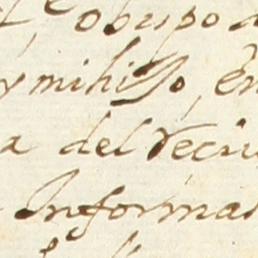 obispo
y mi hijo, en
a del Reciu
Informa